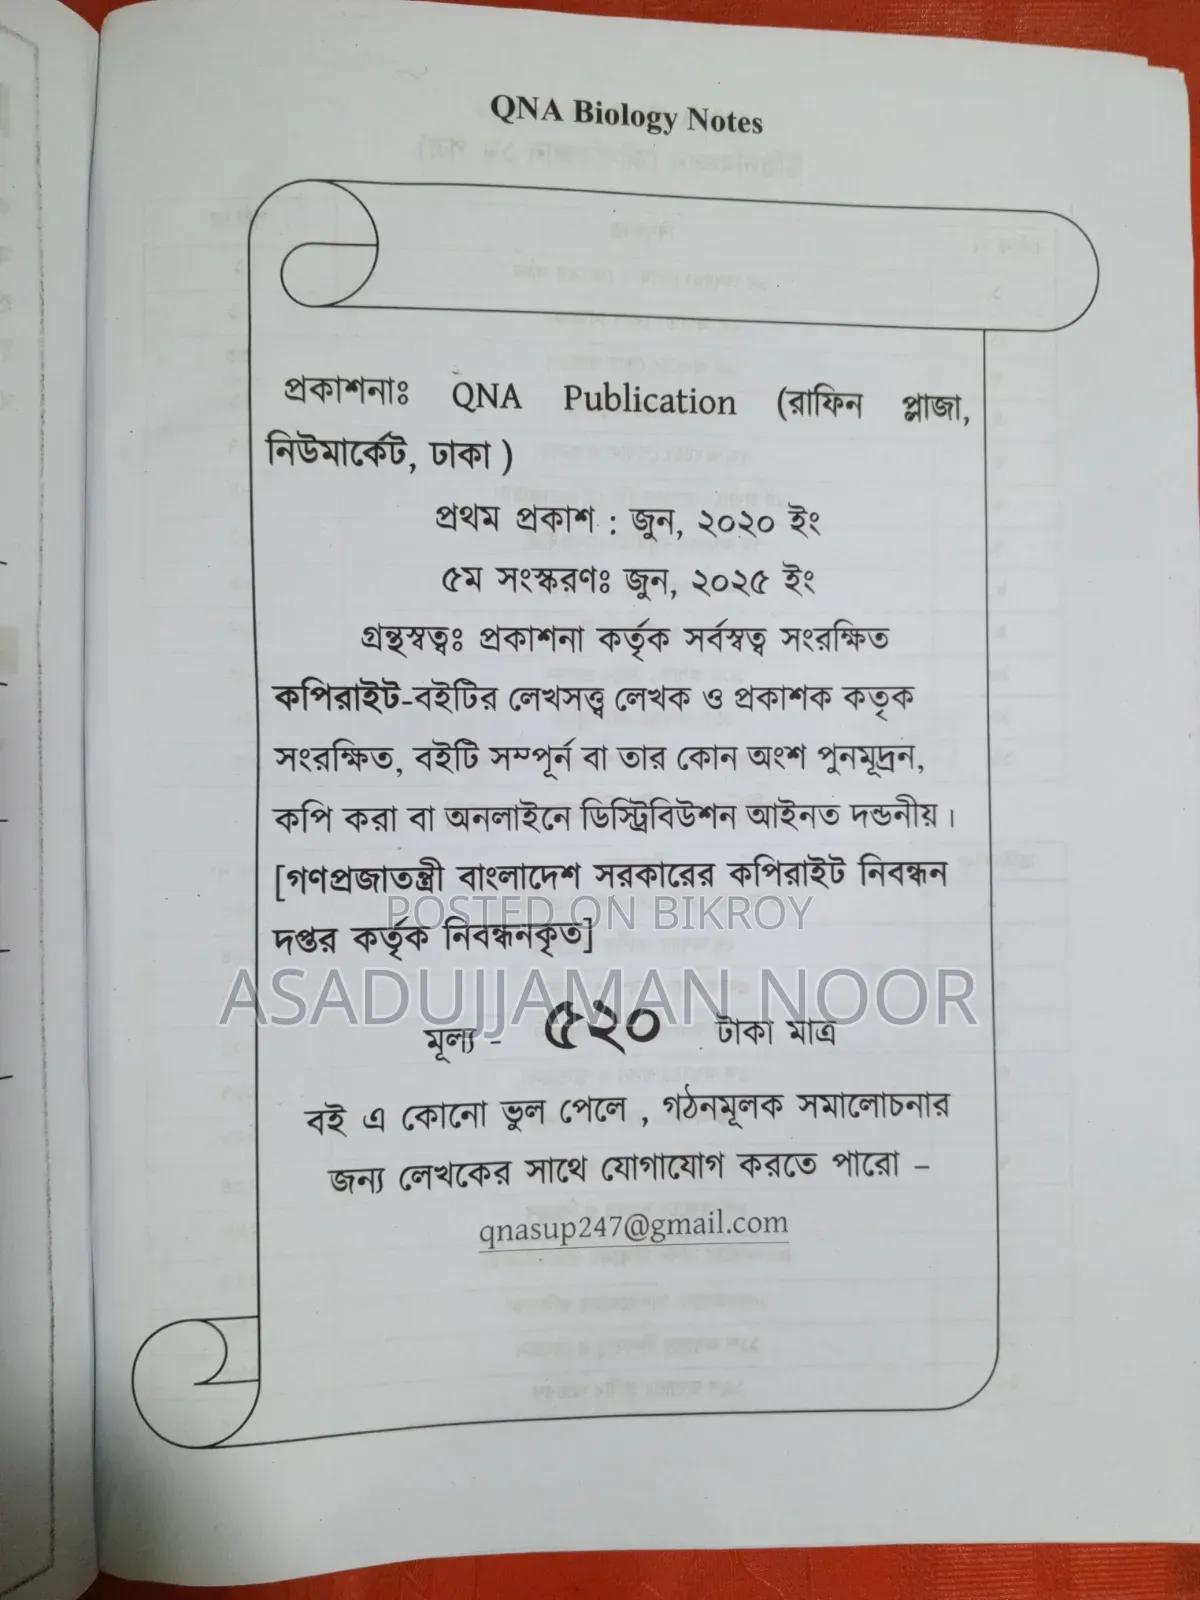 QNA Biology Notes
প্রকাশনাঃ QNA Publication (রাফিন প্লাজা,
নিউমার্কেট, ঢাকা )
প্রথম প্রকাশ : জুন, ২০২০ ইং
৫ম সংস্করণঃ জুন, ২০২৫ ইং
গ্রন্থস্বত্বঃ প্রকাশনা কর্তৃক সর্বস্বত্ব সংরক্ষিত
কপিরাইট-বইটির লেখসত্ত্ব লেখক ও প্রকাশক কতৃক
সংরক্ষিত, বইটি সম্পূর্ন বা তার কোন অংশ পুনমূদ্রন,
কপি করা বা অনলাইনে ডিস্ট্রিবিউশন আইনত দন্ডনীয়।
[গণপ্রজাতন্ত্রী বাংলাদেশ সরকারের কপিরাইট নিবন্ধন
POSTED ON BIKROY
দপ্তর কর্তৃক নিবন্ধনকৃত]
ASADUJJAMAN NOOR
মূল্য - ৫২০ টাকা মাত্র
বই এ কোনো ভুল পেলে , গঠনমূলক সমালোচনার
জন্য লেখকের সাথে যোগাযোগ করতে পারো –
qnasup247@gmail.com